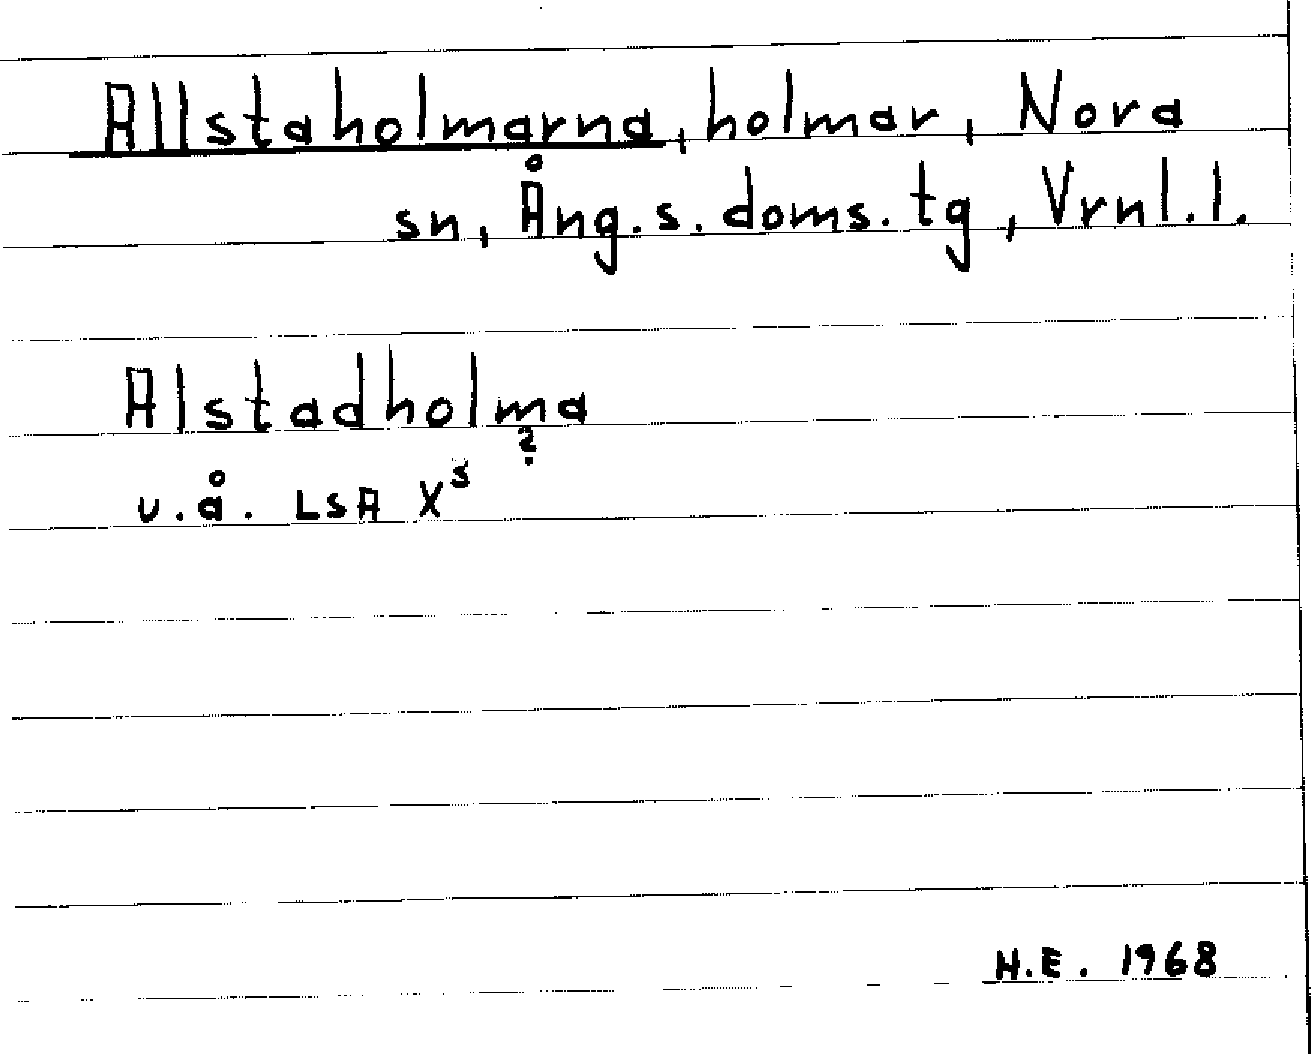 Allstaholmarna, holmar, Nora
sn, Ång.s. doms. tg, Vrnl.l.
Alstadholma
?
u.å. LSA X³
H.E. 1968